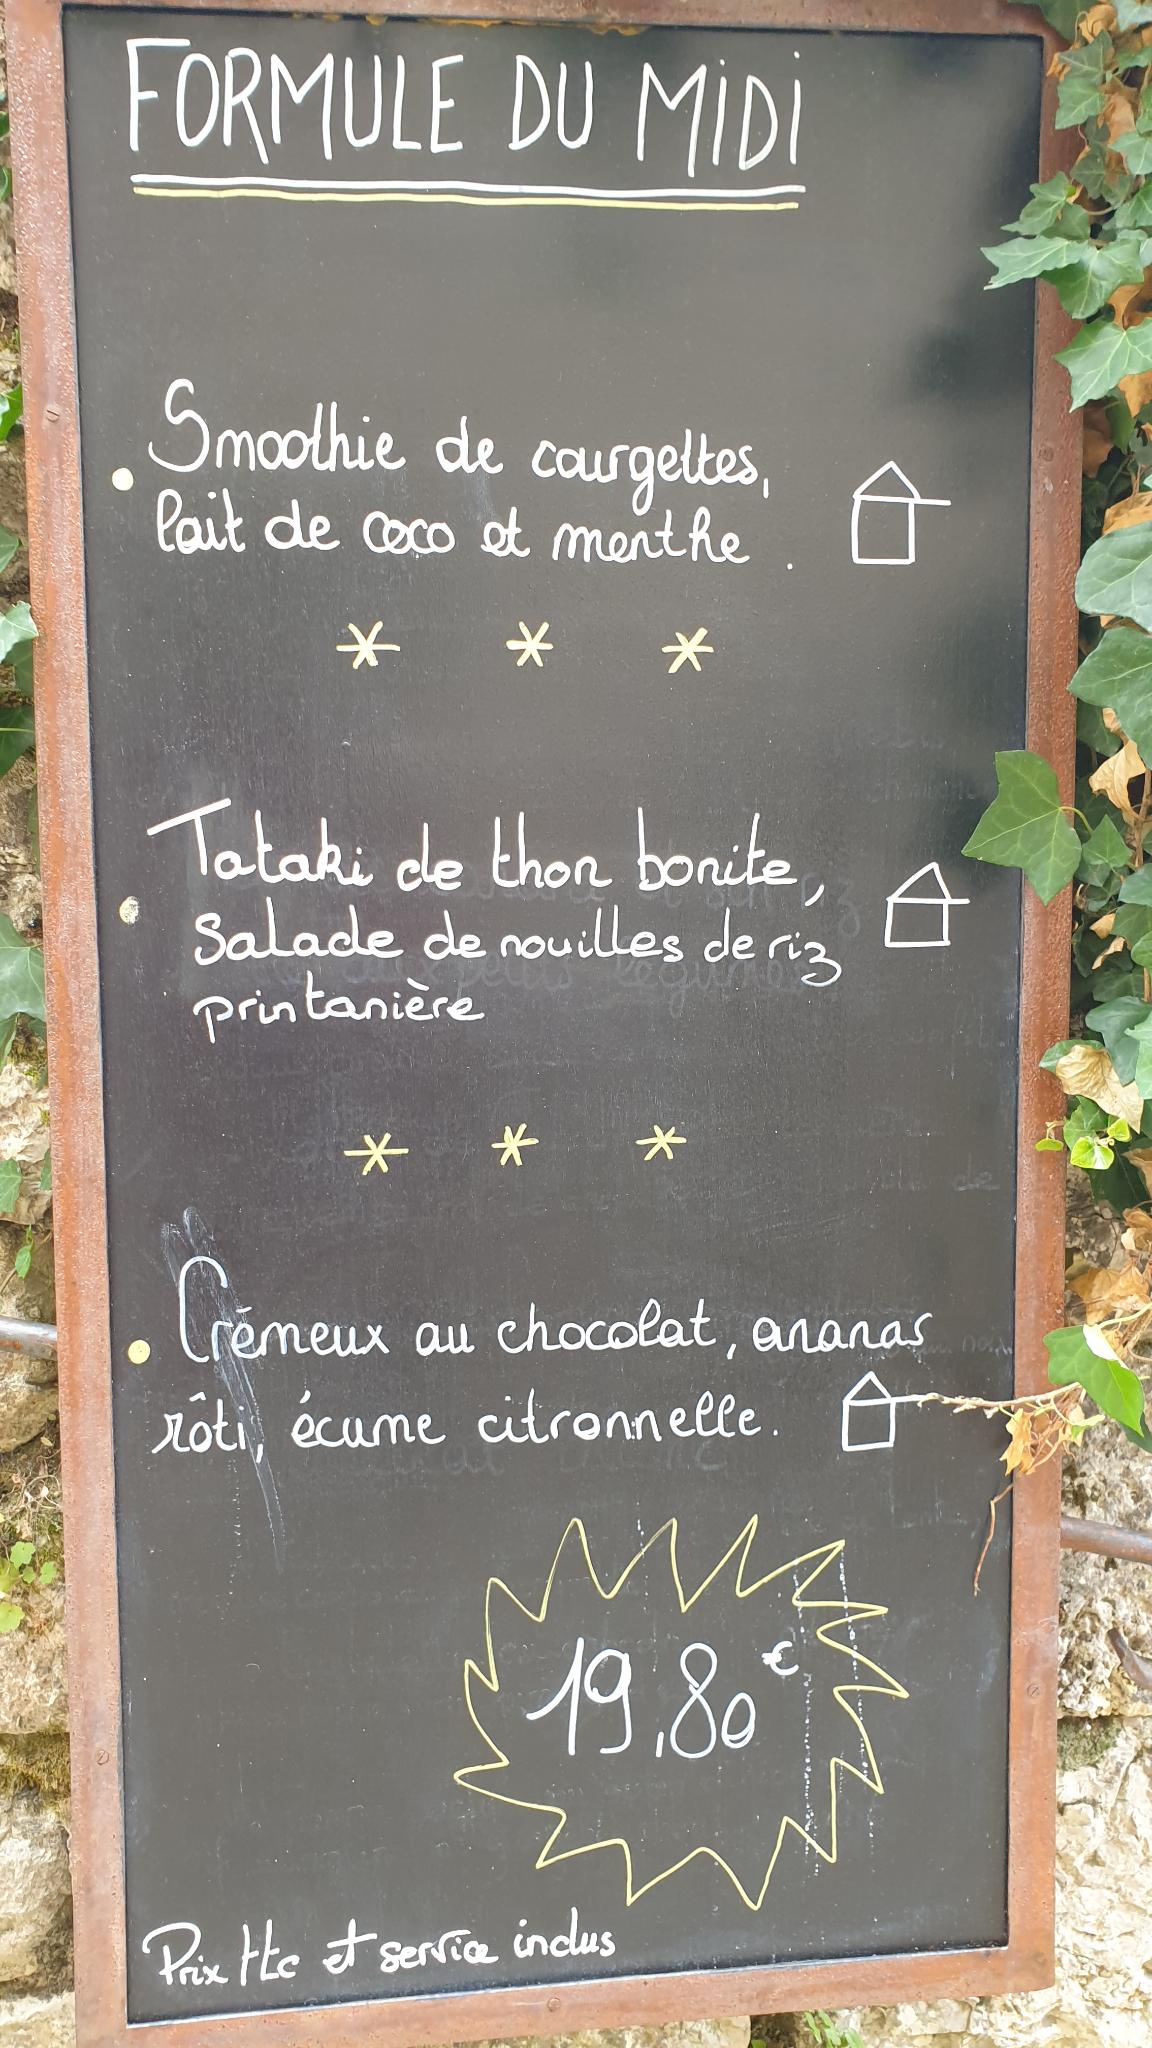 FORMULE DU MIDI
Smoothie de courgettes,
lait de coco et menthe.
* * *
Tataki de thon bonite,
Salade de nouilles de riz
printanière
* * *
Crémeux au chocolat, ananas
rôti, écume citronnelle.
19,80 €
Prix ttc et service inclus